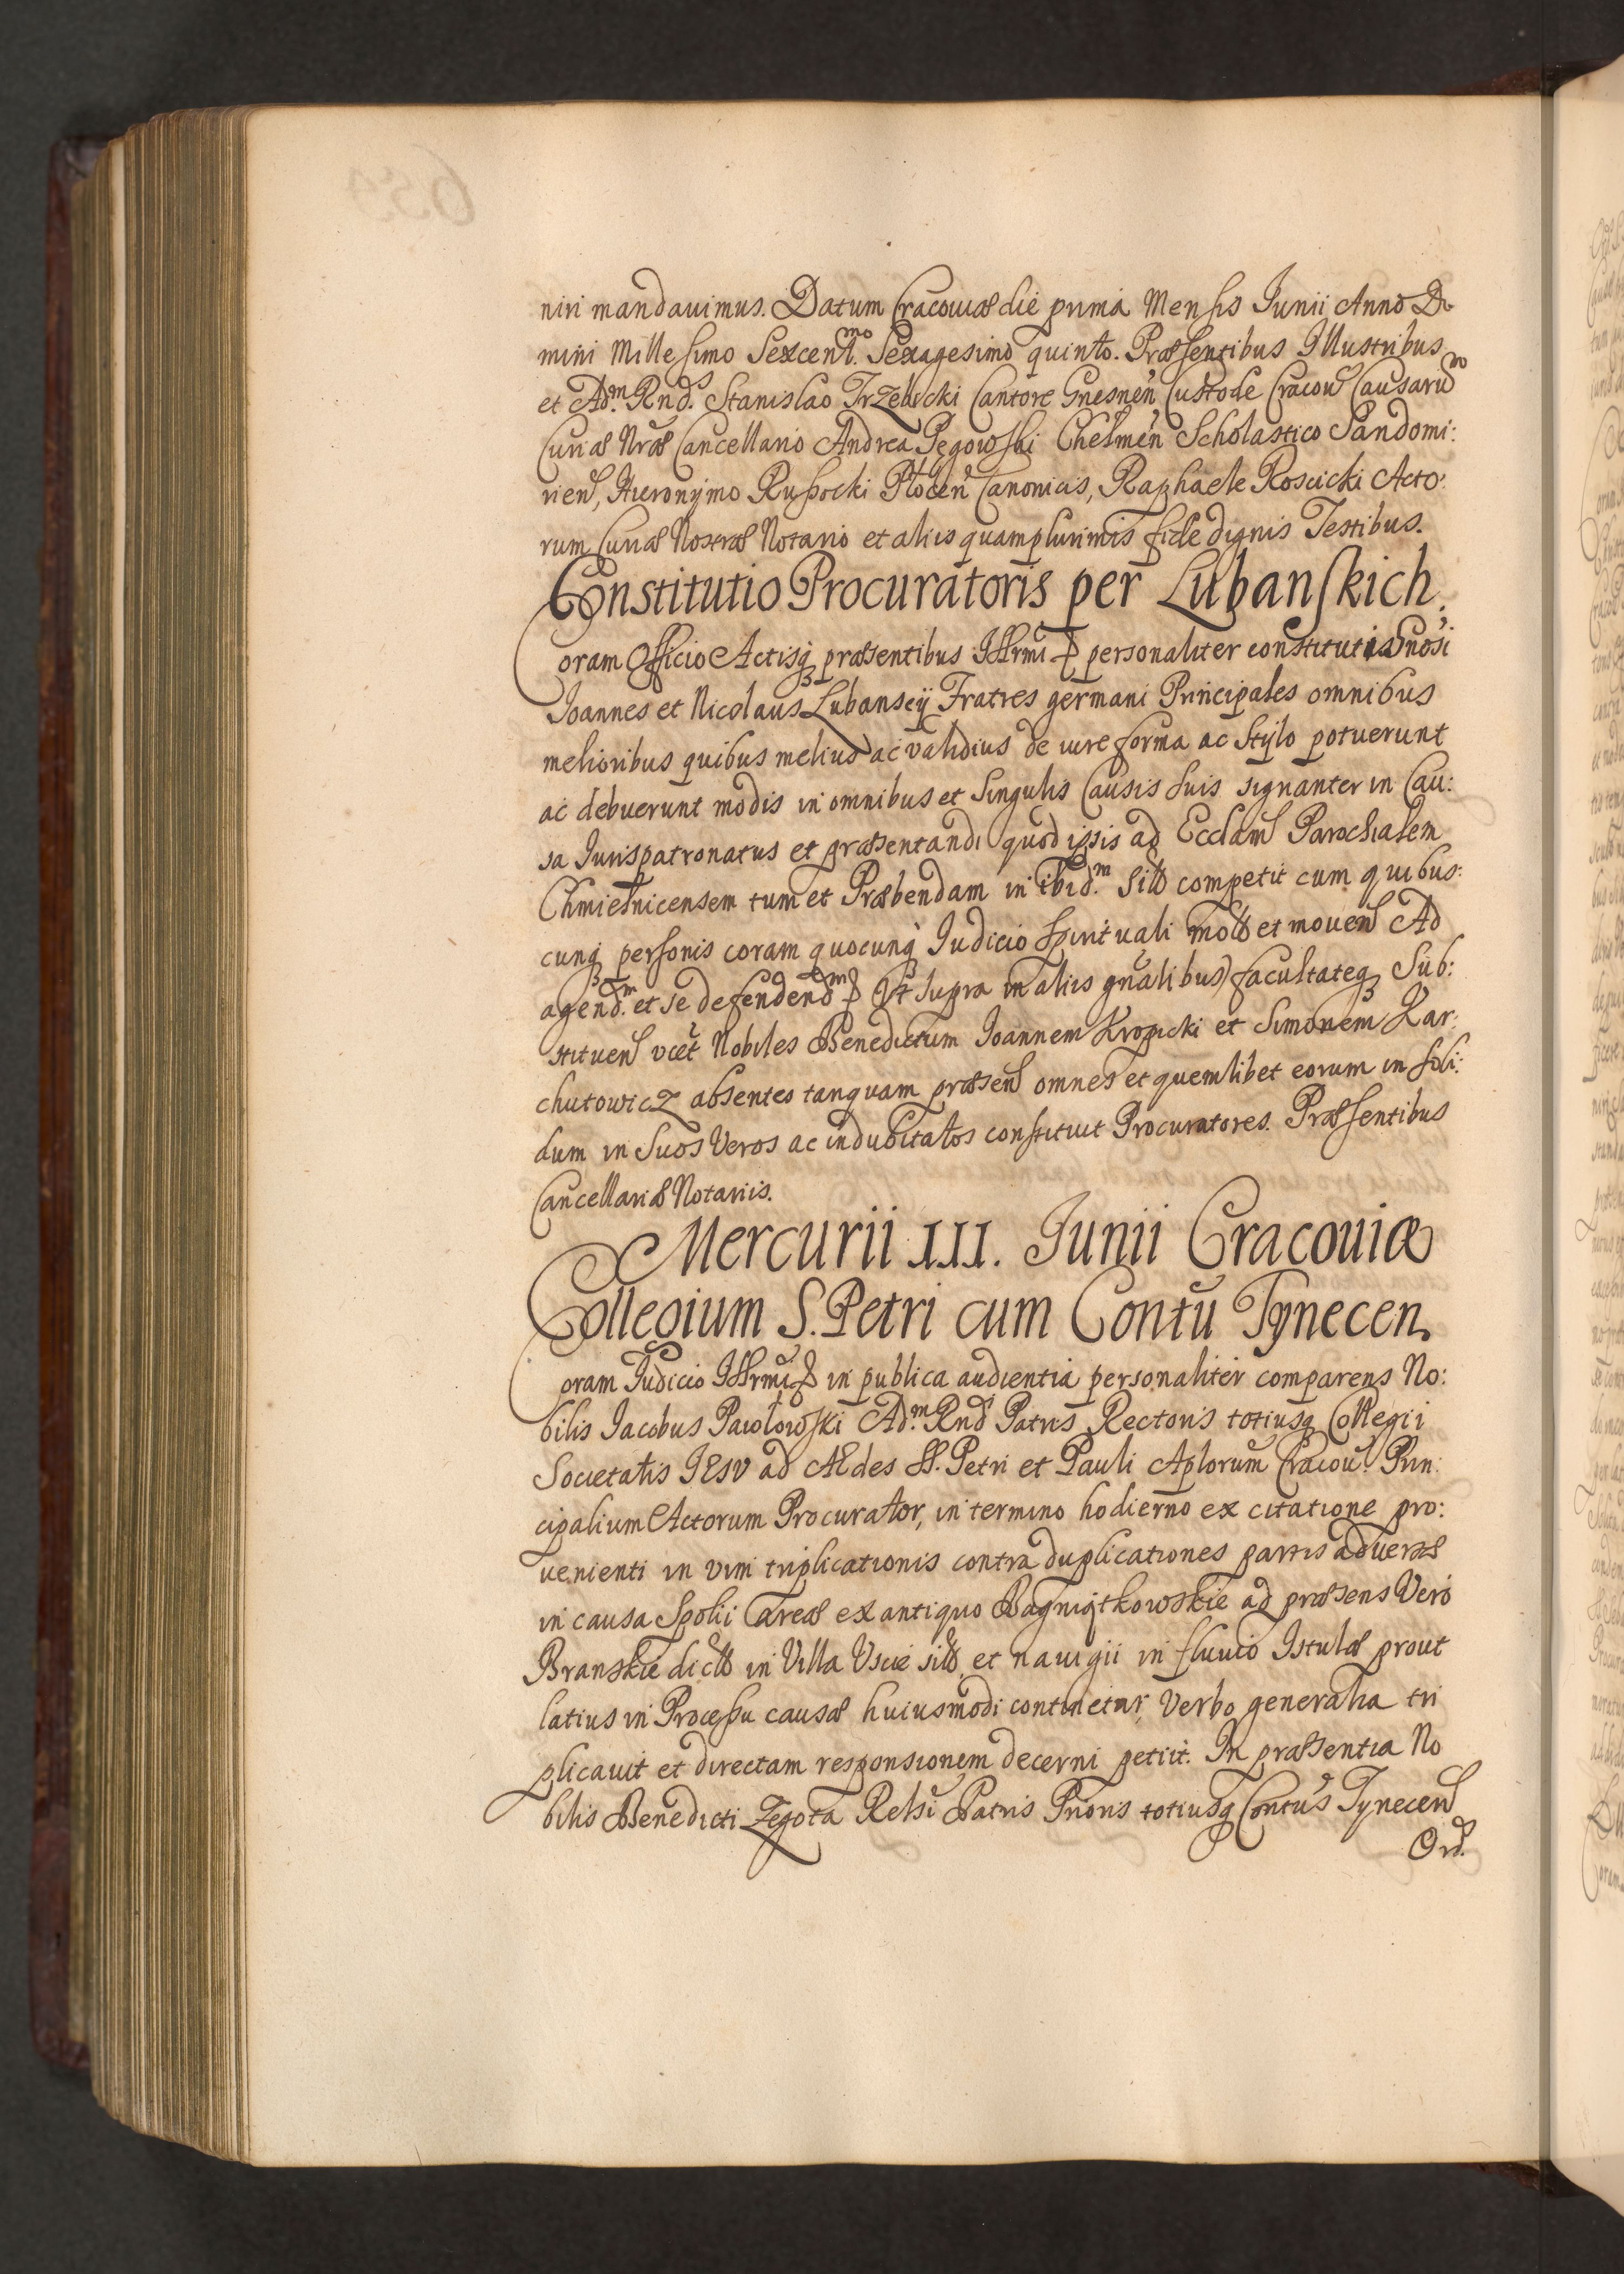 niri mandauimus. Datum Cracouiæ die prima Mensis Junii Anno Do
mini Millesimo Sexcent.mo Sexagesimo quinto. Præsentibus Illustribus
et Ad.m Rnd.s Stanislao Trzebicki Cantore Gnesnen Custode Cracou Causaru
Curiæ Nræ Cancellario Andrea Pęgowski Chelmen Scholastico Sandomi:
rien, Hieronymo Russocki Plocen Canonicis, Raphaele Roscicki Acto
rum Curiæ Nostræ Notario et aliis quamplurimis fide dignis Testibus.
Constitutio Procuratoris per Lubanskich.
Coram Officio Actisq præsentibus Illrmi personaliter constituti Gnosi
Joannes et Nicolaus Lubanscy Fratres germani Principales omnibus
melioribus quibus melius ac validius de iure forma ac Stylo potuerunt
ac debuerunt modis in omnibus et Singulis Causis suis signanter in Cau:
sa Jurispatronatus et præsentandi quod ipsis ad Ecclam Parochialem
Chmielnicensem tum et Præbendam in ibid.m sit competit cum quibus:
cunq personis coram quocunq Judicio Spirituali mot et mouen Ad
agend.m et se defendend.m (Vt supra in aliis gnalibus) facultateq Sub:
stituen vcet Nobiles Benedictum Joannem Kropicki et Simonem Kar:
chutowicz absentes tanquam præsen omnes et quemlibet eorum in soli:
dum in Suos Veros ac indubitatos constituit Procuratores. Præsentibus
Cancellariæ Notariis.
Mercurii III. Junii Cracouiæ
Collegium S. Petri cum Contu Tynecen.
Coram Judicio Illrmi in publica audientia personaliter comparens No:
bilis Jacobus Pawlowski Ad.m Rnd Patris Rectoris totiusq Collegii
Societatis IESV ad Ædes SS. Petri et Pauli Aplorum Cracou. Prin:
cipalium Actorum Procurator, in termino hodierno ex citatione pro:
uenienti in vim triplicationis contra duplicationes partis aduersæ
in causa Spolii areæ ex antiquo Bagniątkowskie ad præsens Vero
Branskie dict in Villa Vscie sit et nauigii in fluuio Istulæ prout
latius in Processu causæ huiusmodi continetur, Verbo generalia tri
plicauit et directam responsionem decerni petiit. In præsentia No
bilis Benedicti Zegota Relsi Patris Prioris totiusq Contus Tynecen
Ord.